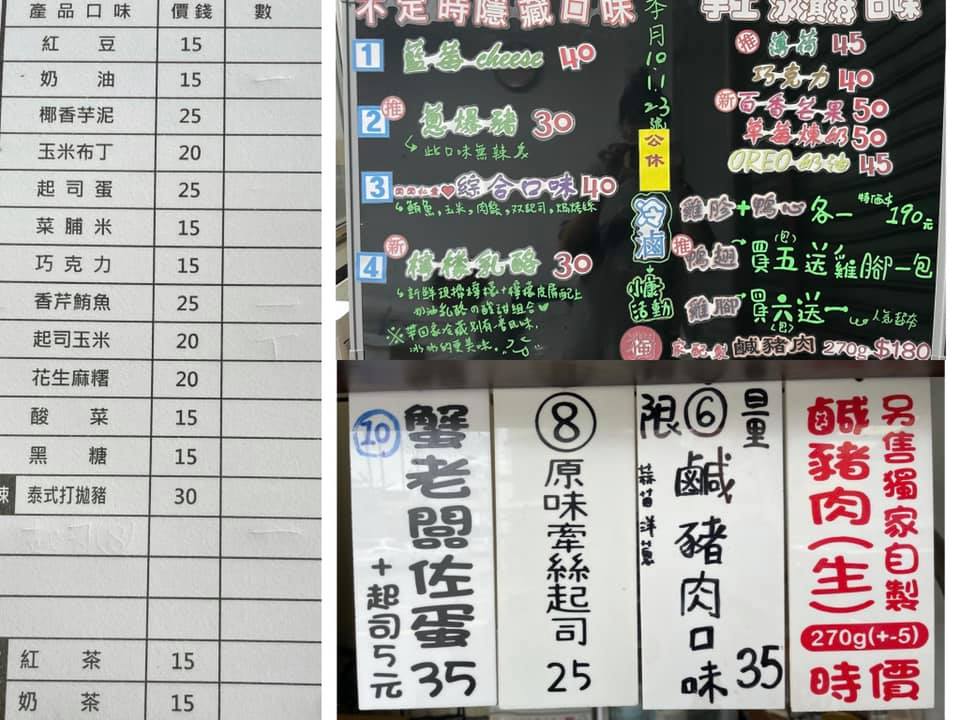 產品口味 價錢 數
紅豆 15
奶油 15
椰香芋泥 25
玉米布丁 20
起司蛋 25
菜脯米 15
巧克力 15
香芹鮪魚 25
起司玉米 20
花生麻糬 20
酸菜 15
黑糖 15
辣 泰式打拋豬 30
紅茶 15
奶茶 15
不定時隱藏口味
1 藍莓cheese 40
2 推 蔥爆豬 30
↳此口味無辣多
3 綜合口味 40
↳鮪魚,玉米,肉鬆,双起司,
4 新 檸檬乳酪 30
↳新鮮現榨檸檬+檸檬皮屑配上
奶油乳酪の酸甜組合
※帶回家冷藏別有一番風味,
冰冰的更美味.
季月10.11.23號
公休
手工冰淇淋口味
推 薄荷 45
巧克力 40
新 百香芒果 50
草莓煉奶 50
OREO奶油 45
冷滷
活動
雞胗+鴨心各一 特価$190元
推 鴨翅 買五(包)送雞腳一包
雞腳 買六(包)送一
獨家配製鹹豬肉 270g $180
⑩ 蟹老闆佐蛋 35
+起司5元
⑧ 原味牽絲起司 25
限⑥量
鹹豬肉口味 35
蒜苗洋蔥
另售獨家自製
鹹豬肉(生)
270g(+-5)
時價